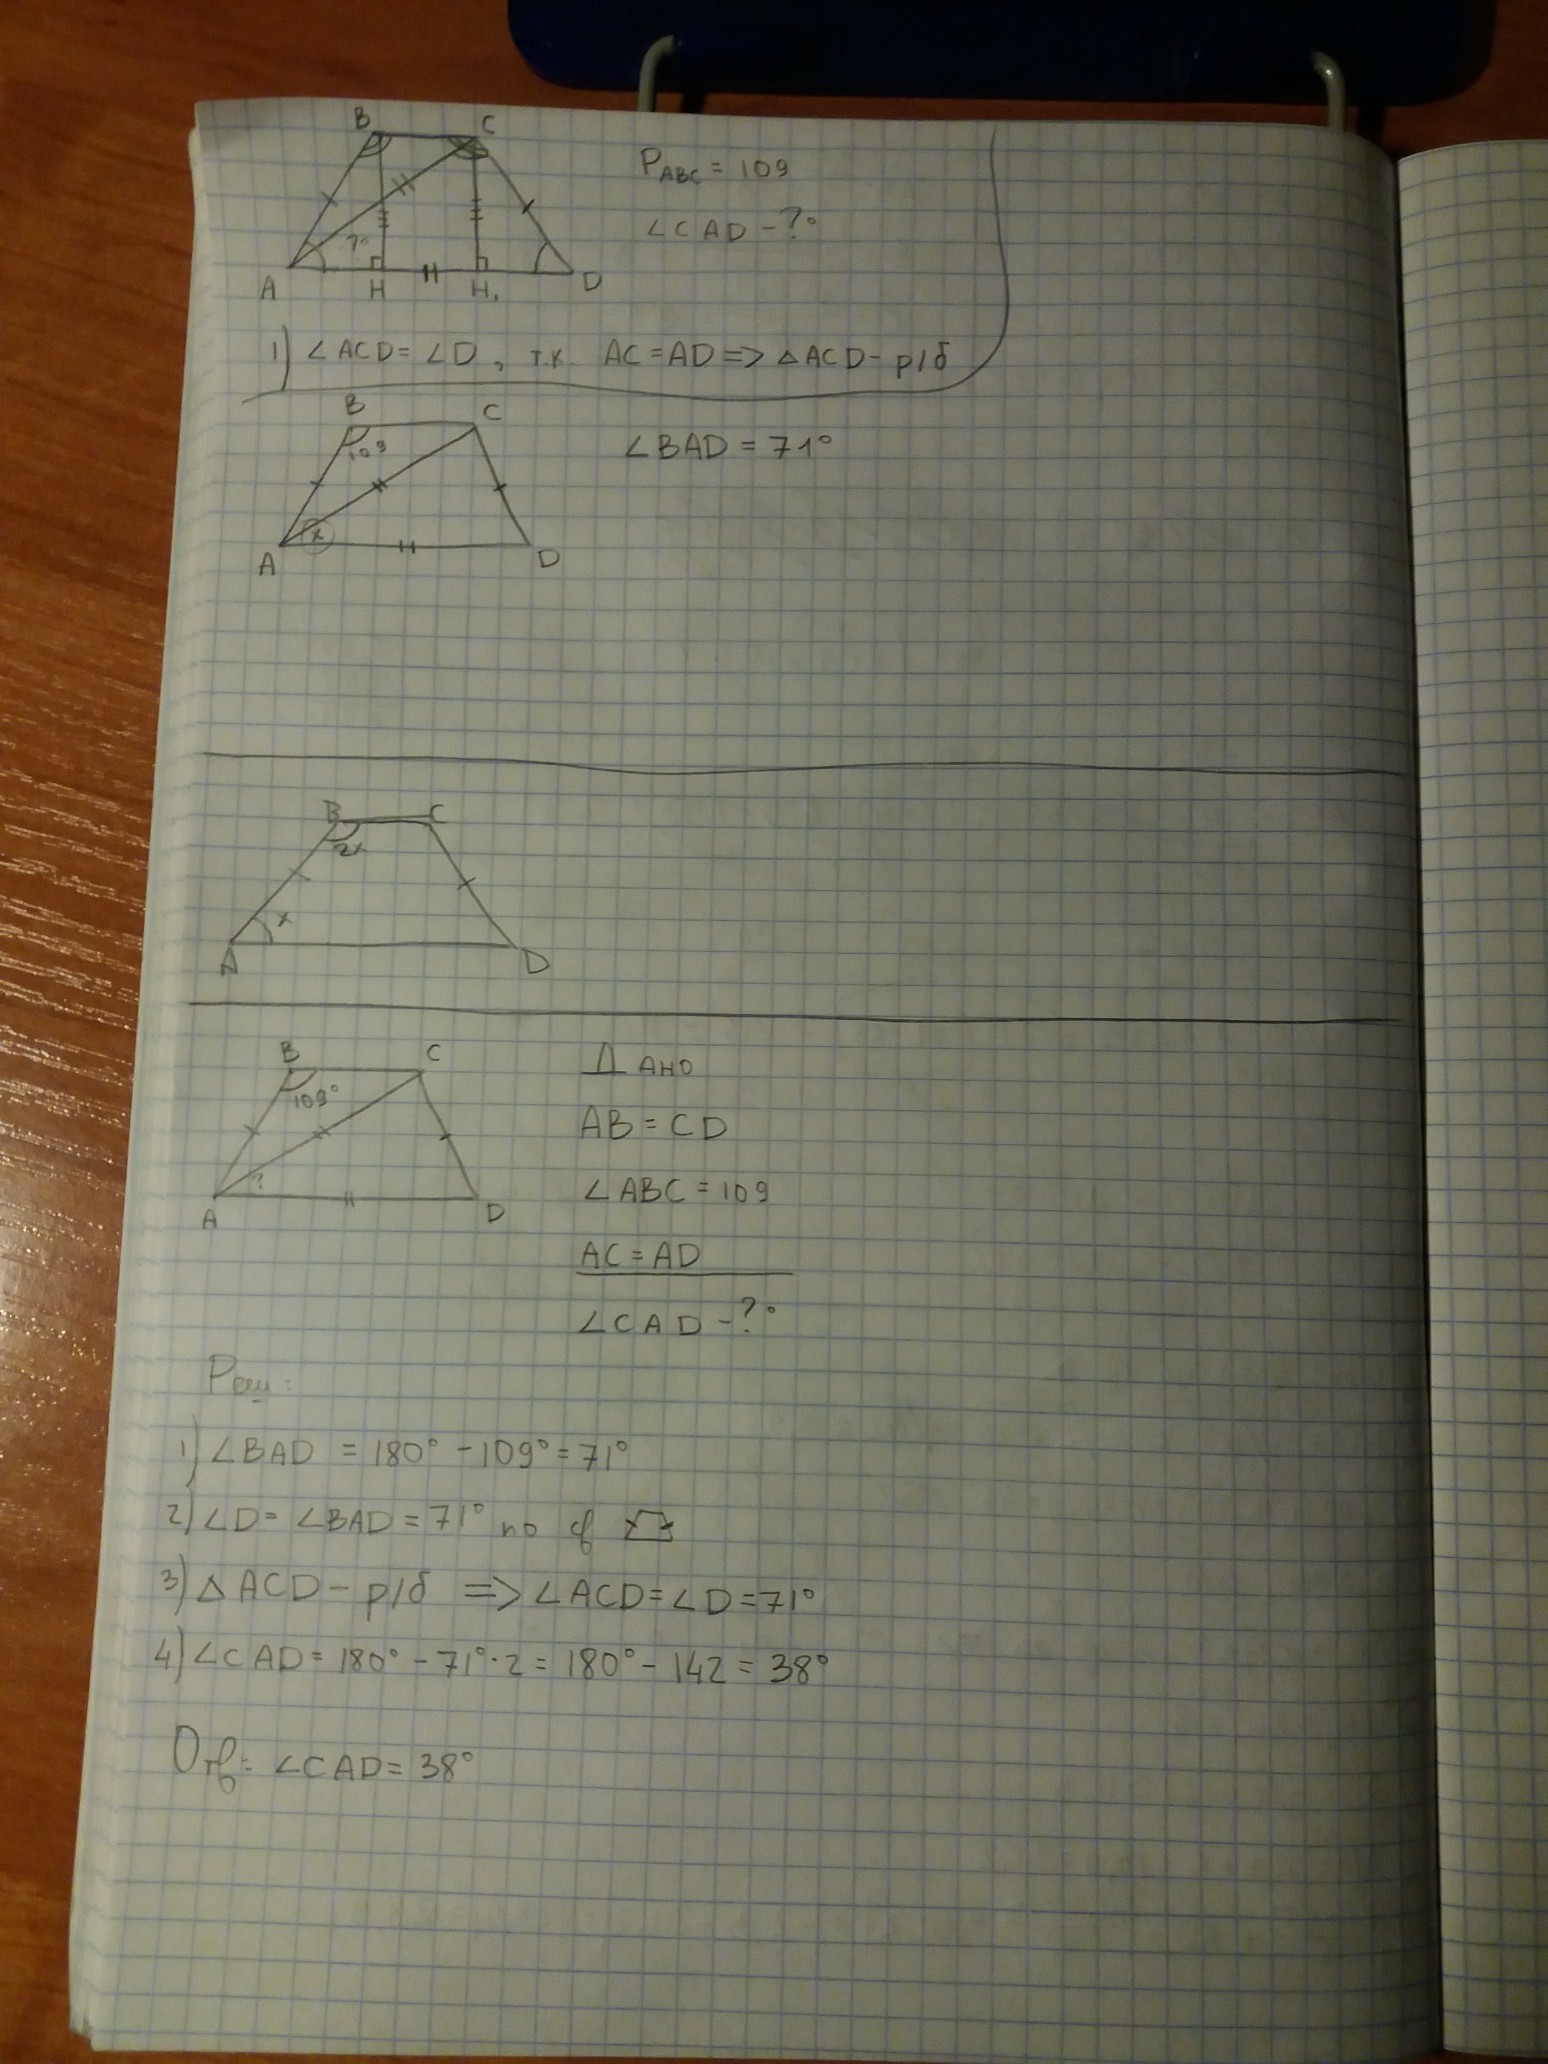 B C
P_ABC = 109
∠CAD - ?°
?°
A H H₁ D
1) ∠ACD = ∠D, т.к. AC = AD => △ACD - р/б
B C
109
∠BAD = 71°
x
A D
B C
2x
x
A D
B C
109°
?
A D
Дано
AB = CD
∠ABC = 109
AC = AD
∠CAD - ?°
Реш:
1) ∠BAD = 180° - 109° = 71°
2) ∠D = ∠BAD = 71° по св
3) △ACD - р/б => ∠ACD = ∠D = 71°
4) ∠CAD = 180° - 71° · 2 = 180° - 142 = 38°
Отв: ∠CAD = 38°